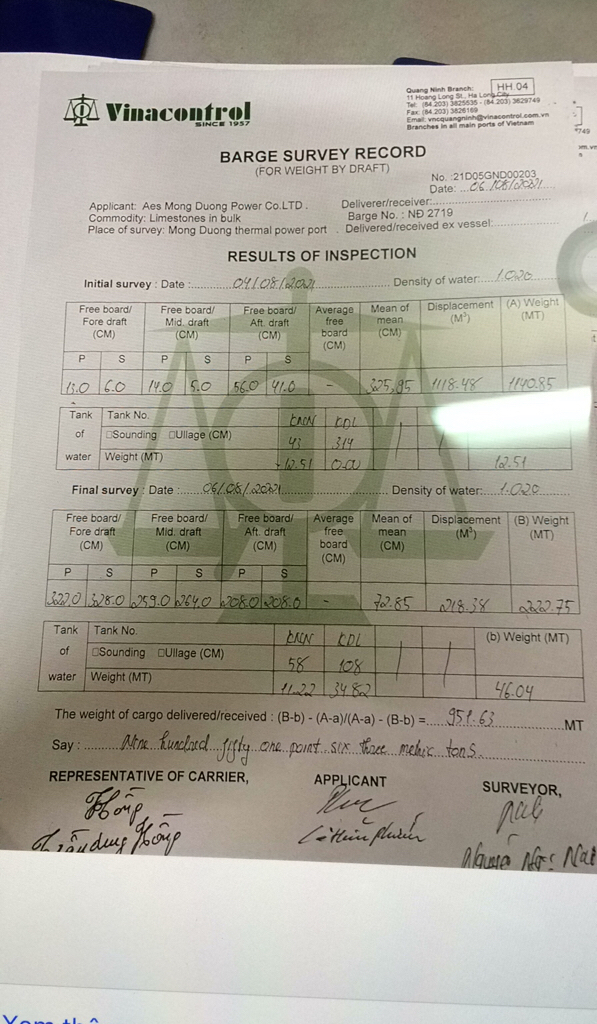 Vinacontrol
SINCE 1957
Quang Ninh Branch:
HH.04
11 Hoang Long St., Ha Long City
Tel: (84.203) 3825535 - (84.203) 3829749
Fax: (84.203) 3826169
Email: vncquangninh@vinacontrol.com.vn
Branches in all main ports of Vietnam
BARGE SURVEY RECORD
(FOR WEIGHT BY DRAFT)
No. :21D05GND00203
Date: ...06/08/2021
Applicant: Aes Mong Duong Power Co.LTD . Deliverer/receiver:
Commodity: Limestones in bulk Barge No. : NĐ 2719
Place of survey: Mong Duong thermal power port . Delivered/received ex vessel:
RESULTS OF INSPECTION
Initial survey : Date : 04/08/2021 Density of water: 1.020
Free board/ Fore draft (CM) Free board/ Mid. draft (CM) Free board/ Aft. draft (CM) Average free board (CM) Mean of mean (CM) Displacement (M³) (A) Weight (MT)
P S P S P S
13.0 6.0 14.0 5.0 56.0 41.0 - 325.95 1118.48 1140.85
Tank of water Tank No. KNN KDL
□Sounding □Ullage (CM) 43 314
Weight (MT) 12.51 0.00 12.51
Final survey : Date : 06/08/2021 Density of water: 1.020
Free board/ Fore draft (CM) Free board/ Mid. draft (CM) Free board/ Aft. draft (CM) Average free board (CM) Mean of mean (CM) Displacement (M³) (B) Weight (MT)
P S P S P S
322.0 328.0 259.0 264.0 208.0 208.0 - 72.85 218.38 222.75
Tank of water Tank No. KNN KDL (b) Weight (MT)
□Sounding □Ullage (CM) 58 108
Weight (MT) 11.22 34.82 46.04
The weight of cargo delivered/received : (B-b) - (A-a)/(A-a) - (B-b) = 951.63 MT
Say : Nine hundred fifty one point six three metric tons
REPRESENTATIVE OF CARRIER, APPLICANT SURVEYOR,
Hồng